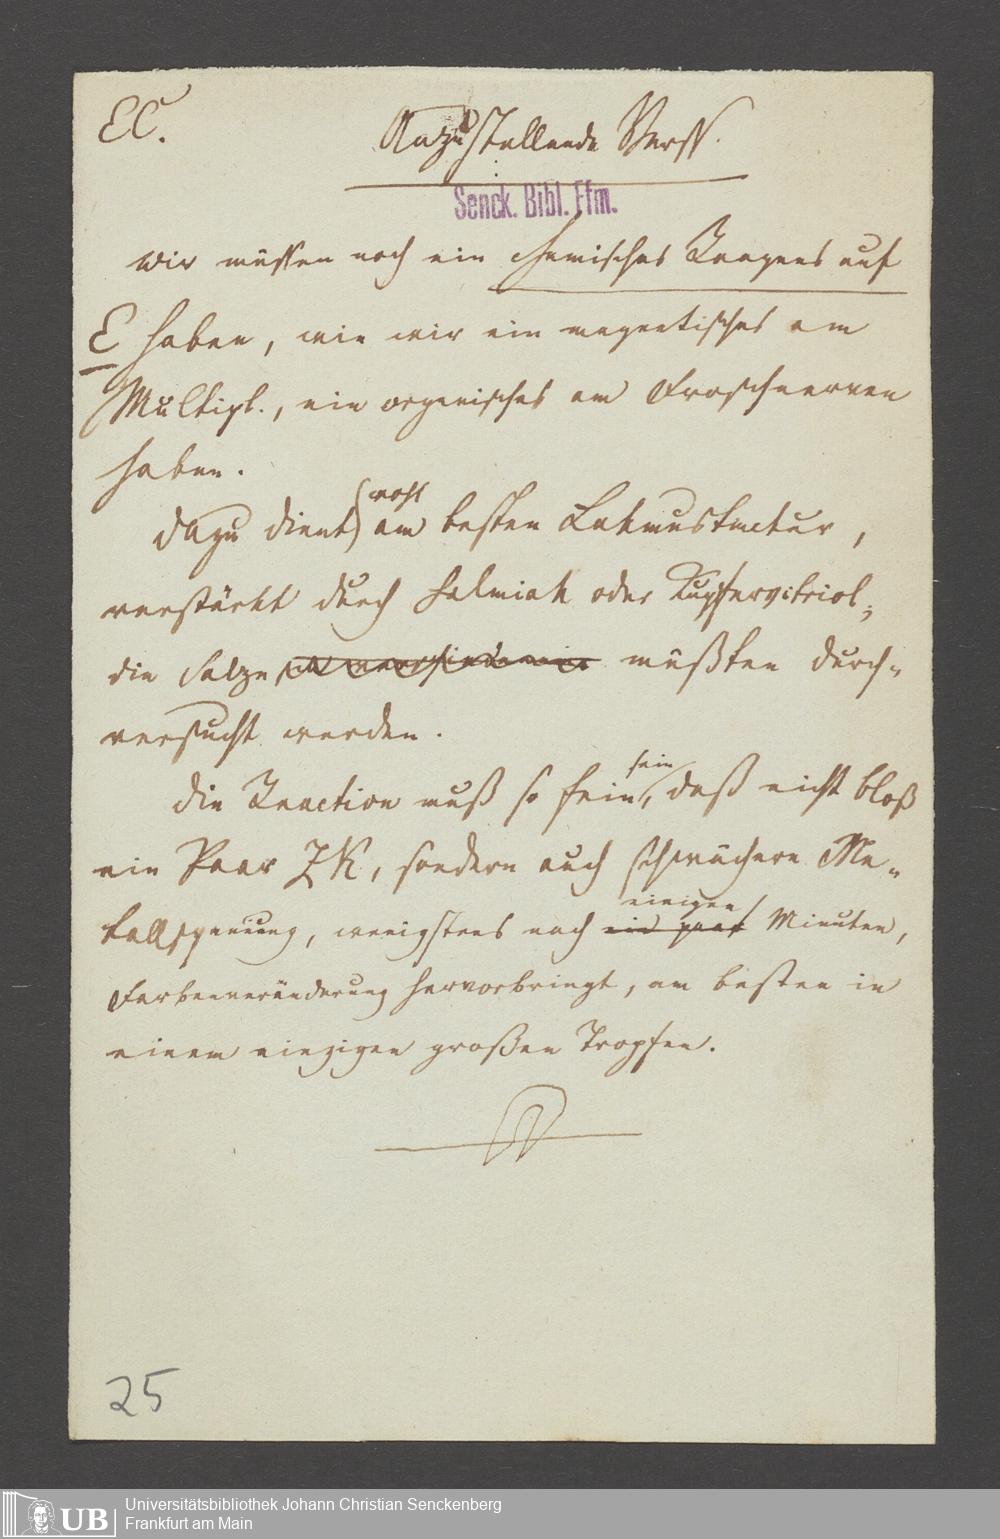 EC.
Anzustellende Verss.
Senck. Bibl. Ffm.
Wir müssen noch ein chemisches Reagens auf
E haben, wie wir ein magnetisches am
Multipl., ein organisches am Froschnerven
haben.
Dazu dient wohl am besten Lakmustinctur,
verstärkt durch Salmiak oder Kupfervitriol;
die Salze müßten durch-
versucht werden.
Die Reaction muß so fein sein, daß nicht bloß
ein Paar ZK, sondern auch schwächere Me-
tallspannung, wenigstens nach ein paar einigen Minuten,
Farbenveränderung hervorbringt, am besten in
einem einzigen großen Tropfen.
25
UB
Universitätsbibliothek Johann Christian Senckenberg
Frankfurt am Main